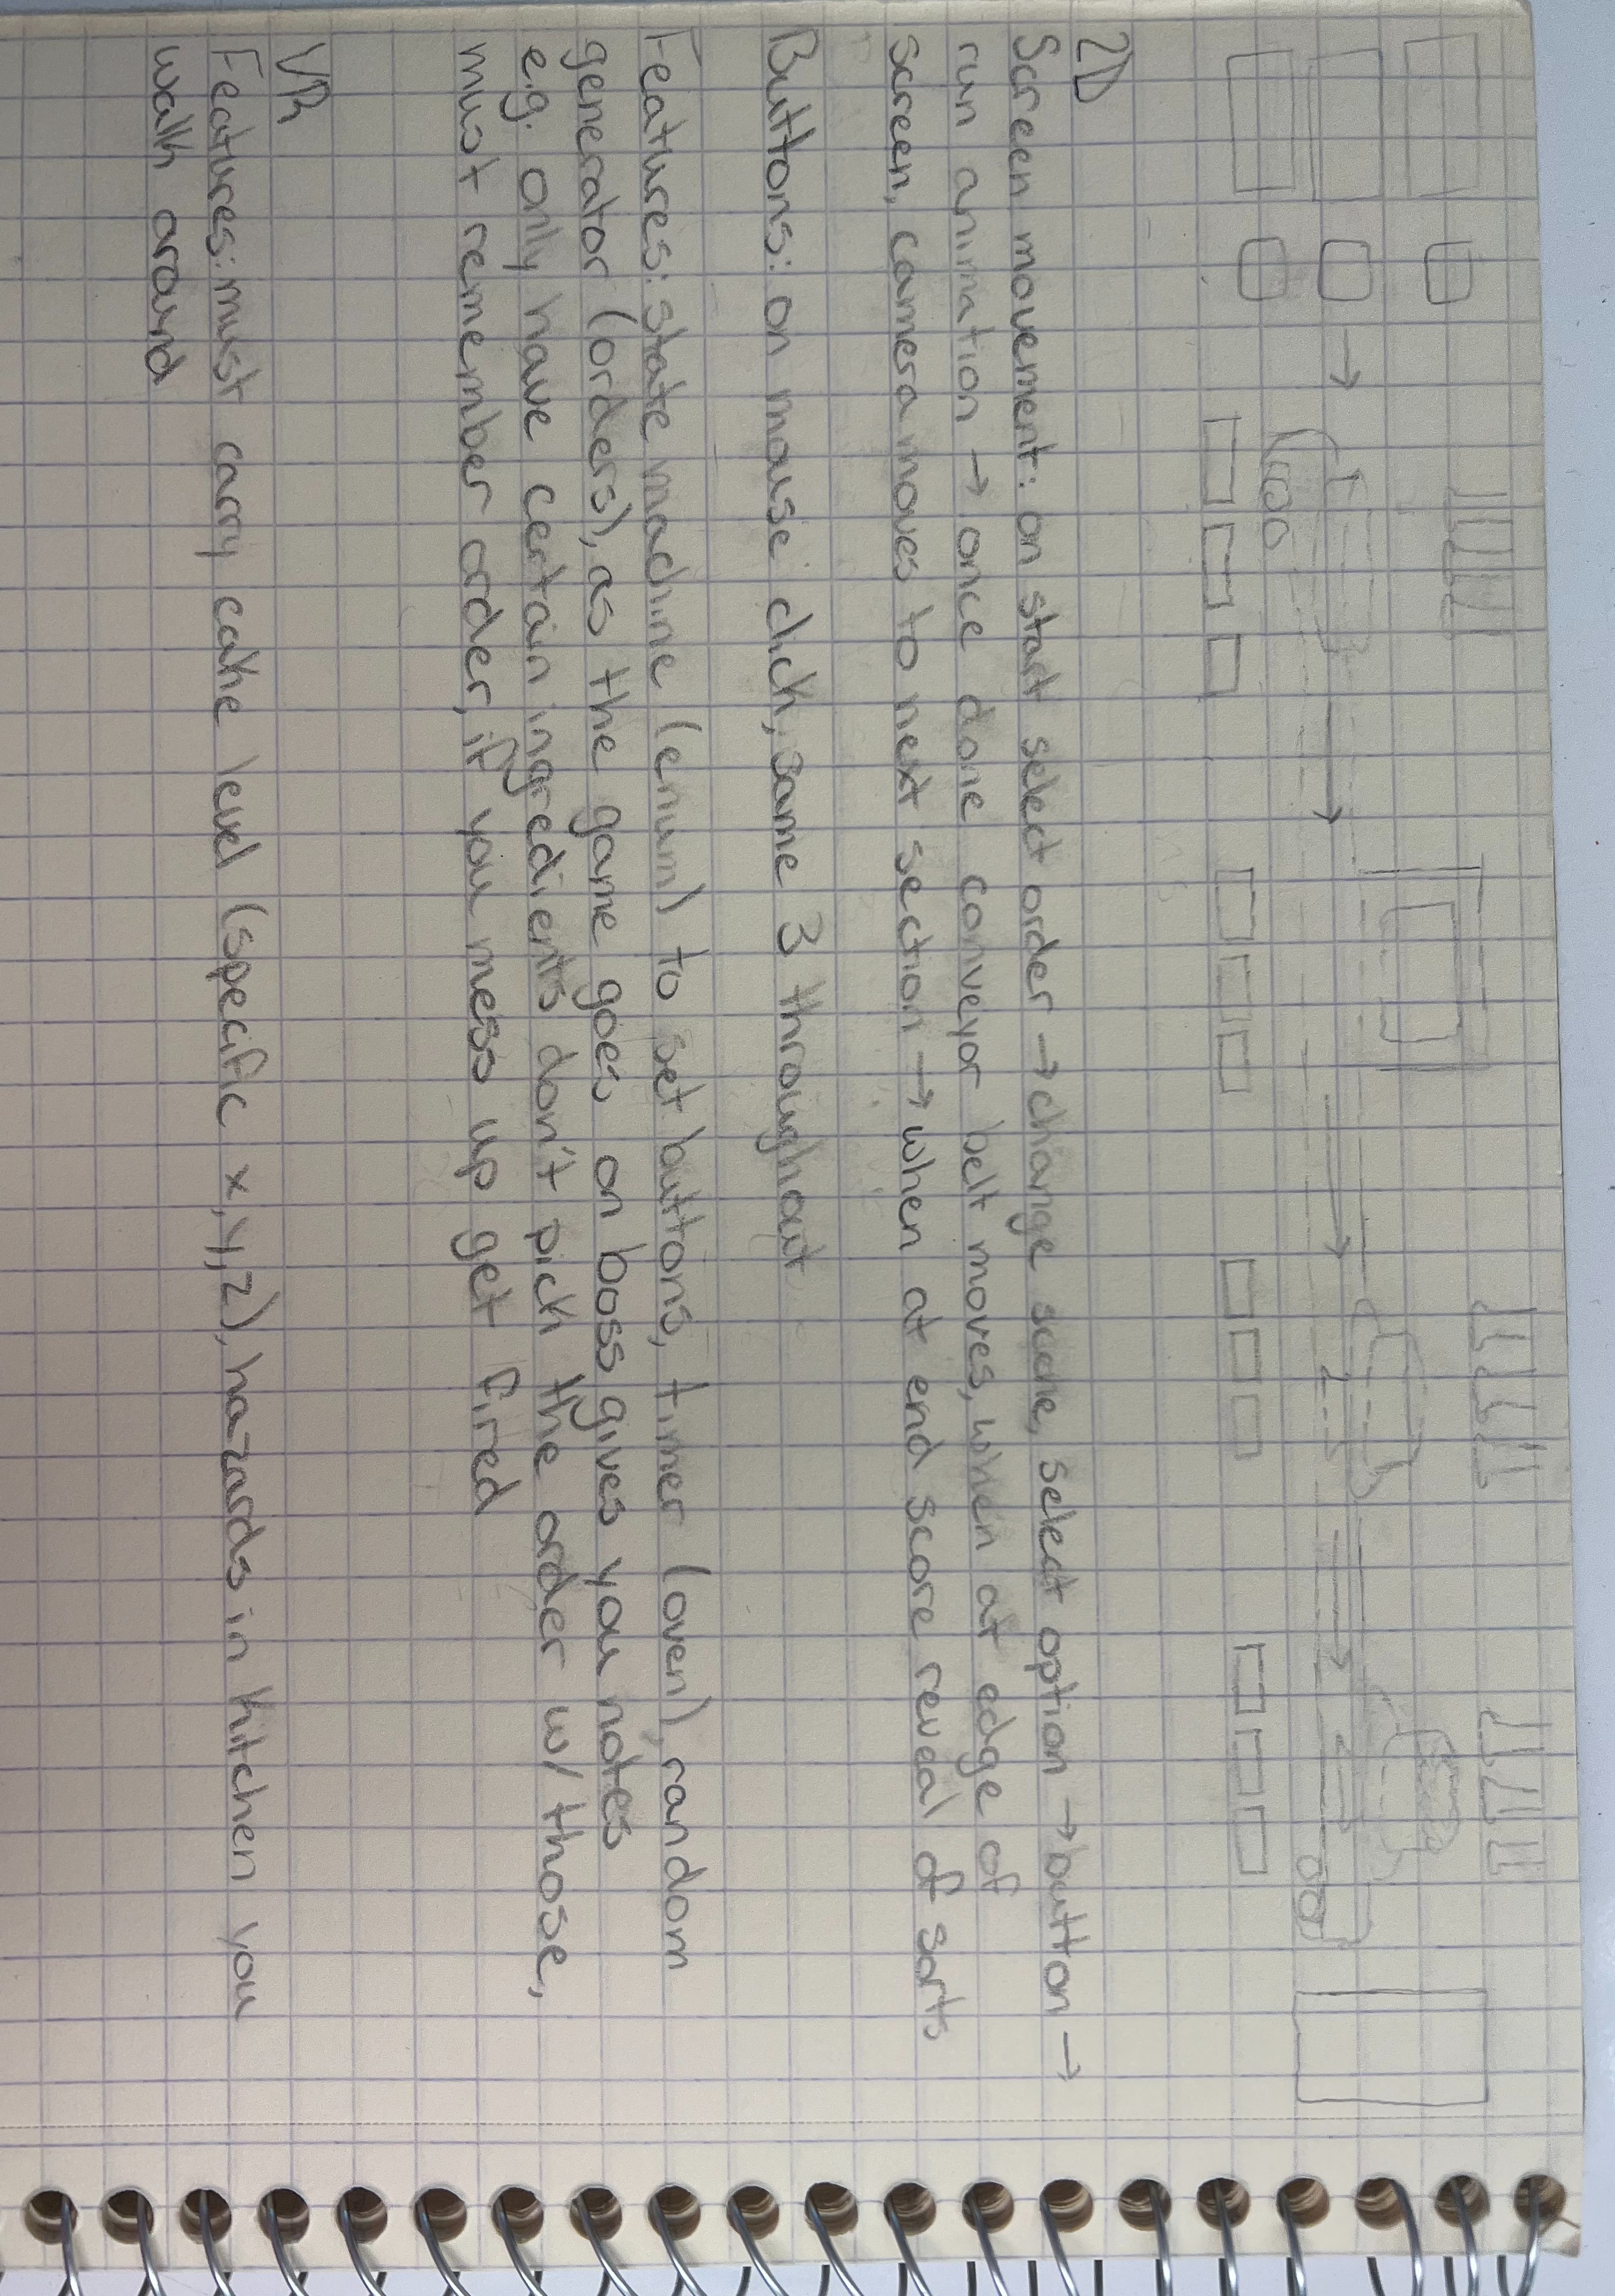 2D
Screen movement: on start select order → change scene, select option → button →
run animation → once done conveyor belt moves, when at edge of
screen, camera moves to next section → when at end score reveal of sorts
Buttons: on mouse click, same 3 throughout
Features: state machine (enum) to set buttons, timer (oven), random
generator (orders), as the game goes on boss gives you notes
e.g. only have certain ingredients don't pick the order w/ those,
must remember order, if you mess up get fired
VR
Features: must carry cake level (specific x,y,z), hazards in kitchen you
walk around